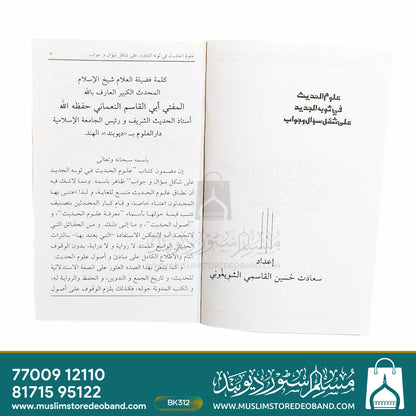 علوم الحديث
في ثوبه الجديد
على شكل سؤال وجواب
إعداد
سعادت حسين القاسمي الشوبفوني
علوم الحديث في ثوبه الجديد على شكل سؤال و جواب
كلمة فضيلة العلام شيخ الإسلام
المحدث الكبير العارف بالله
المفتي أبي القاسم النعماني حفظه الله
أستاذ الحديث الشريف و رئيس الجامعة الإسلامية
دارالعلوم بـ «ديوبند» الهند.
باسمه سبحانه وتعالى
إن مضمون كتاب "علوم الحديث في ثوبه الجديد
على شكل سؤال و جواب" ظاهر باسمه. ومما لاشك فيه
أن معرفة علوم الحديث متمم للغاية، و لذا اعتنى بها
المحدثون اعتناء خاصا، و قام كبار المحدثين بتصنيف
كتب قيمة حولها بأسماء "معرفة علوم الحديث"، و
"أصول الحديث"، وما إلى ذلك. و من الحقائق التي
لاتجحد أنه لايمكن الاستفادة "التي يعتد بها" بالتراث
الحديثي الواسع المتزايد. لا رواية و لا دراية، بدون الوقوف
التام والاطلاع الكامل على مبادئ و أصول علوم الحديث.
و كما يتعلق بهذا الصدد العثور على الصفة الاستدلالية
للحديث، و تاريخ الجمع و التدوين، و الحفظ والرواية له،
و الكتب المدونة حوله، فكذلك يلزم الوقوف على أصول
مسلم سٹور دیوبند
WWW.MUSLIMSTOREDEOBAND.COM
77009 12110
81715 95122
BK312
مسلم سٹور دیوبند
www.muslimstoredeoband.com